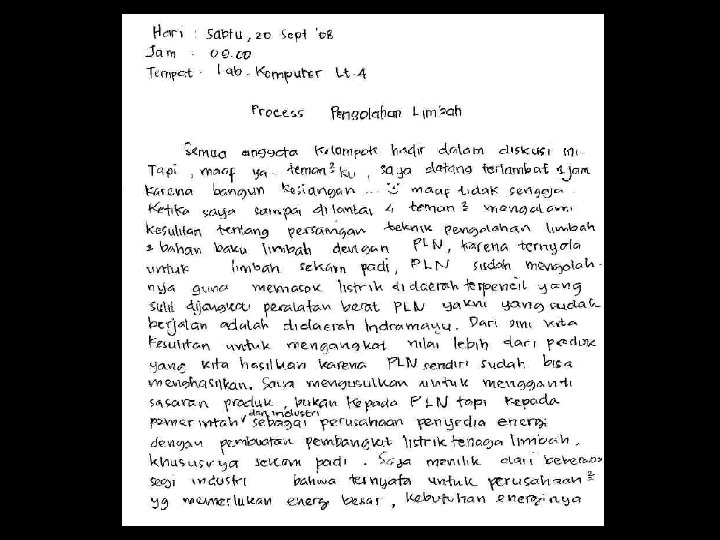 Hari : Sabtu, 20 Sept '08
Jam : 09.00
Tempat : Lab. Komputer Lt. 4
Process Pengolahan Limbah
Semua anggota kelompok hadir dalam diskusi ini.
Tapi, maaf ya teman² ku, saya datang terlambat 1 jam
karena bangun kesiangan ... maaf tidak sengaja.
Ketika saya sampai dilantai 4 teman² mengalami
kesulitan tentang persaingan teknik pengolahan limbah
& bahan baku limbah dengan PLN, karena ternyata
untuk limbah sekam padi, PLN sudah mengolah-
nya guna memasok listrik didaerah terpencil yang
sulit dijangkau peralatan berat PLN yakni yang sudah
berjalan adalah didaerah Indramayu. Dari sini kita
kesulitan untuk mengangkat nilai lebih dari produk
yang kita hasilkan karena PLN sendiri sudah bisa
menghasilkan. Saya mengusulkan untuk mengganti
sasaran produk, bukan kepada PLN tapi kepada
pemerintah dan industri sebagai perusahaan penyedia energi
dengan pembuatan pembangkit listrik tenaga limbah,
khususnya sekam padi. Saya menilik dari beberapa
segi industri bahwa ternyata untuk perusahaan²
yg memerlukan energi besar, kebutuhan energinya